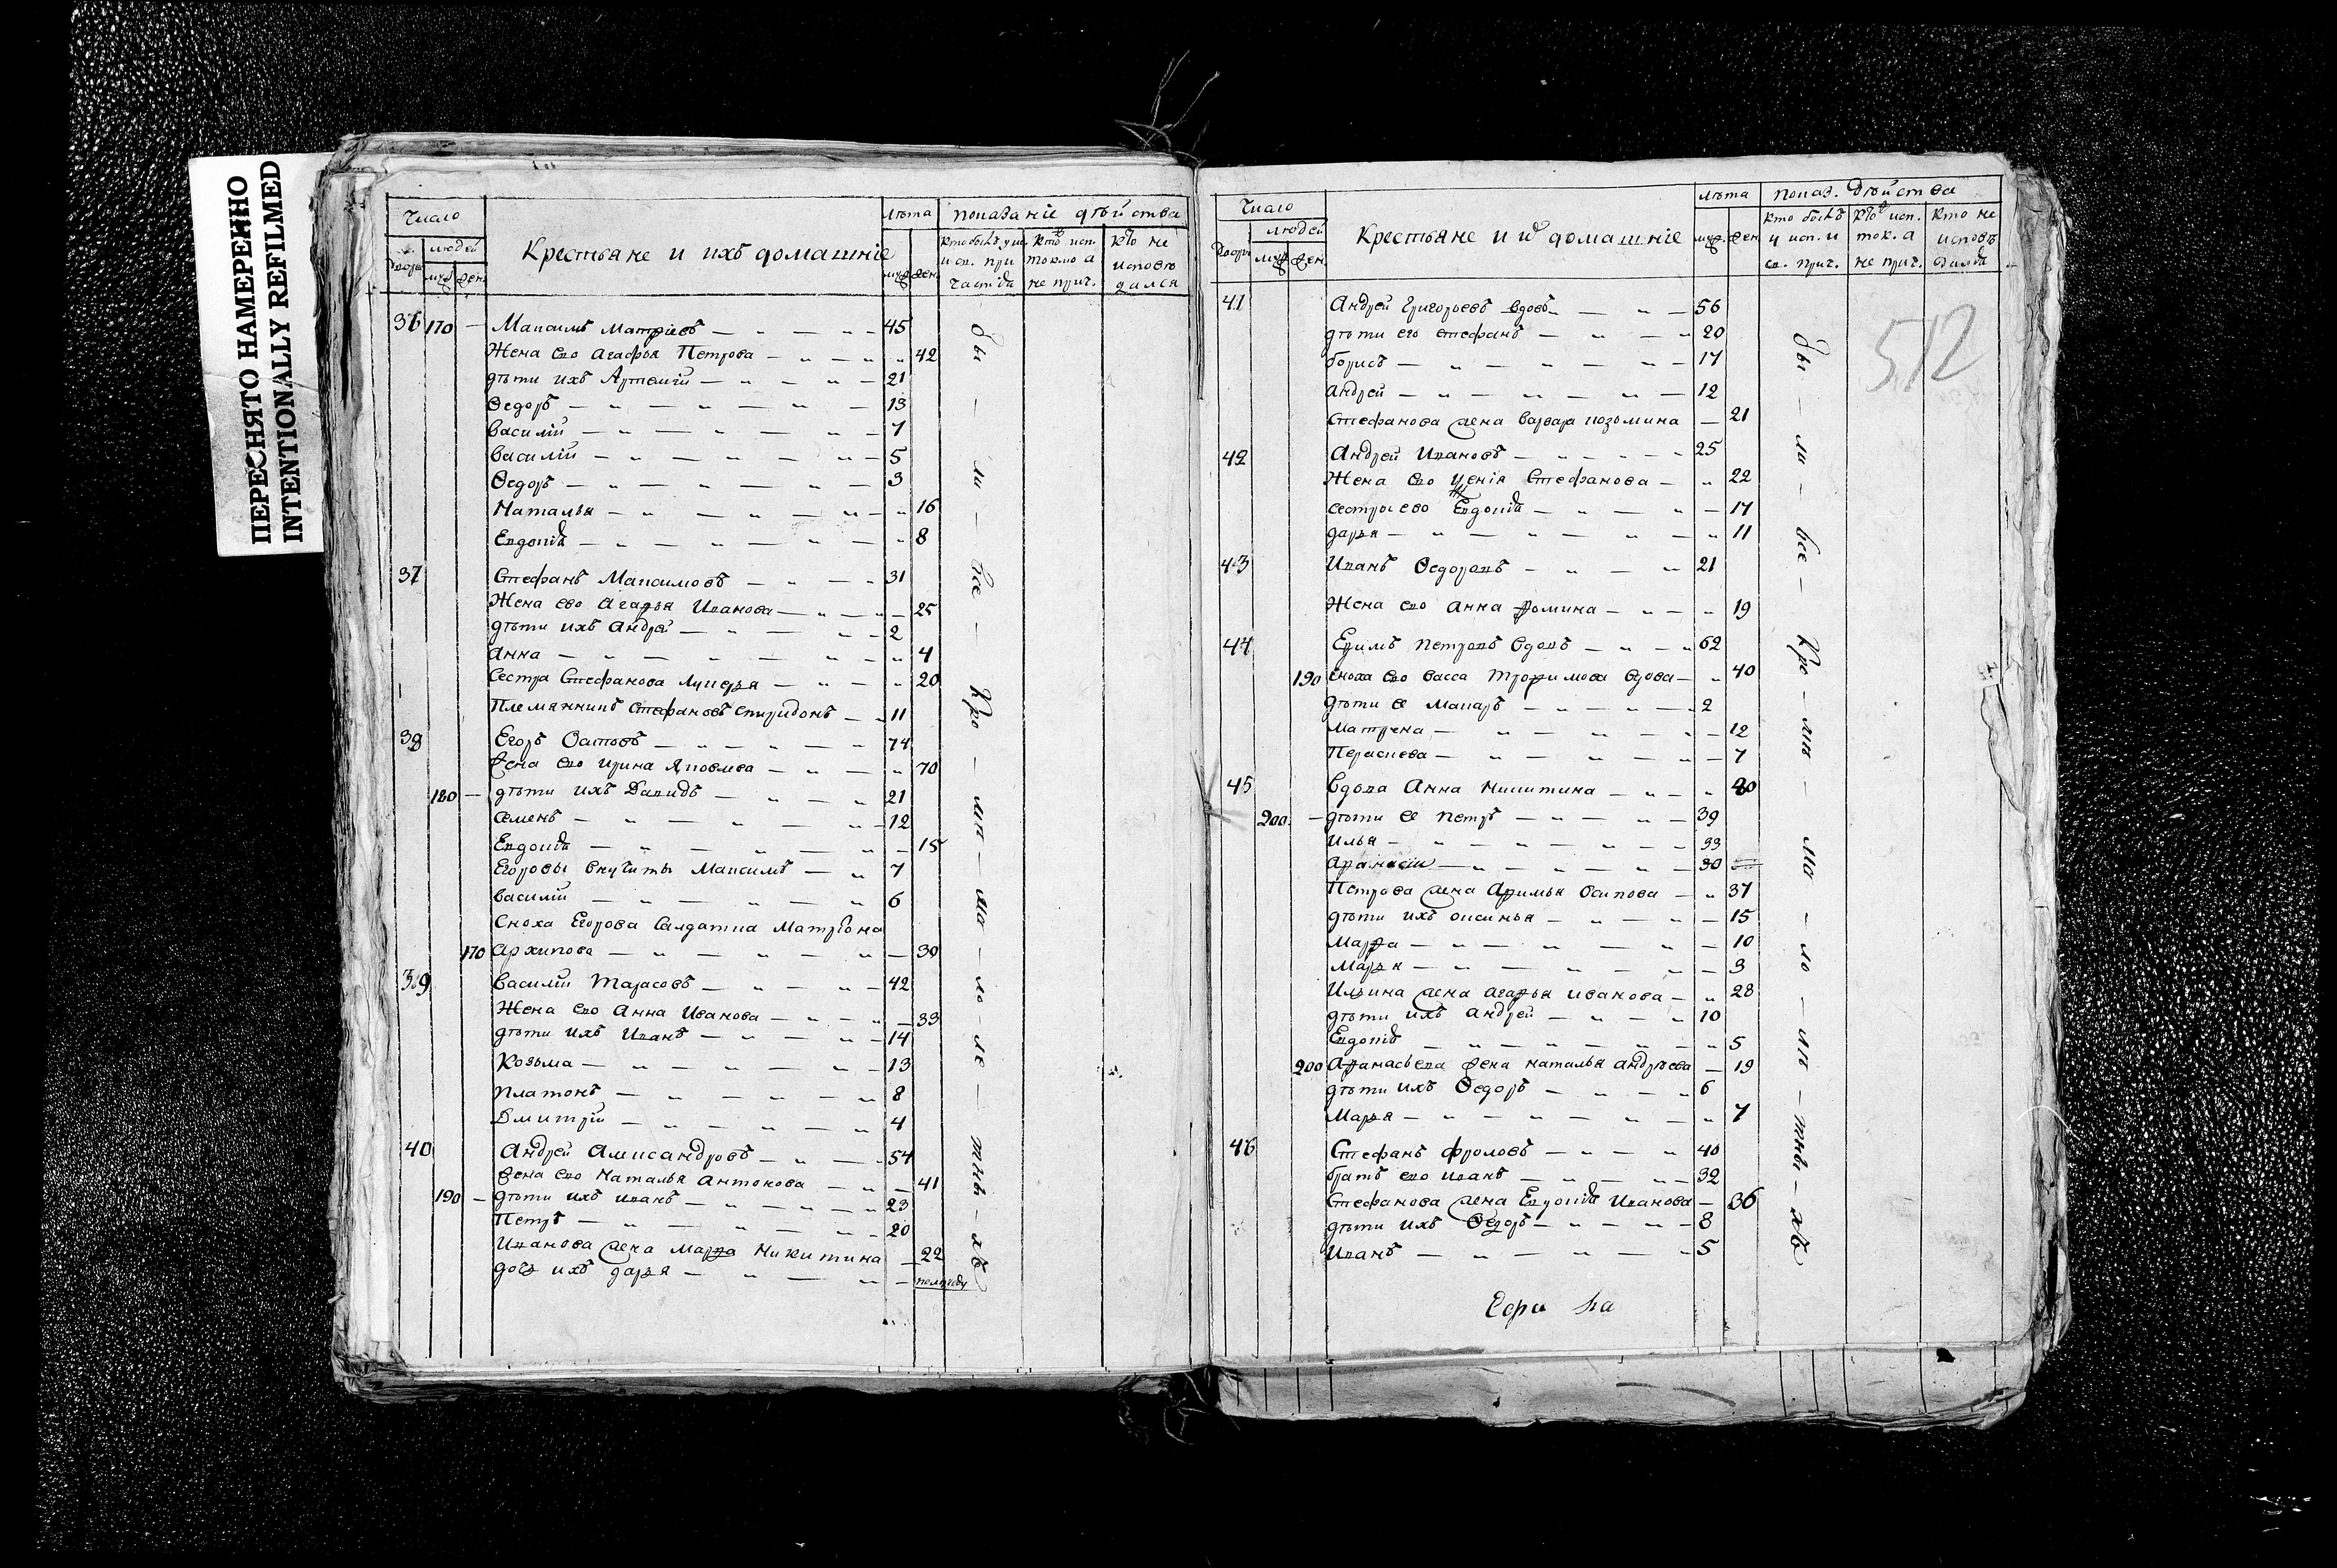 ПЕРЕСНЯТО НАМЕРЕННО
INTENTIONALLY REFILMED
Число
людей
муж. жен.
Крестьяне и ихъ домашніе
лѣта
муж. жен.
показаніе дѣйства
кто не исповѣдался
36 170 — Максимъ Матвѣевъ 45
Жена ево Агафья Петрова 42
дѣти ихъ Артемій 21
Ѳедоръ 13
Василій 7
Василій 5
Ѳедоръ 3
Наталья 16
Евдокія 8
37 Стефанъ Максимовъ 31
Жена ево Агафья Иванова 25
дѣти ихъ Андрей 2
Анна 4
Сестра Стефанова Лукерья 20
Племянникъ Стефановъ Спиридонъ 11
38 Егоръ 74
Жена ево Ирина Яковлева 70
180 — дѣти ихъ Давидъ 21
Семенъ 12
Евдокія 15
Егоровы внучиты Максимъ 7
Василій 6
Сноха Егорова Салдатка Матрiона
170 Архипова 30
39 Василій Тарасовъ 42
Жена ево Анна Иванова 33
дѣти ихъ Иванъ 14
Козьма 13
Платонъ 8
Дмитрій 4
40 Андрей Алиѯандровъ 54
Жена ево Наталья Антонова 41
190 — дѣти ихъ Иванъ 23
Петръ 20
Иванова жена Марфа Никитина 22
дочь ихъ Дарья полгоду
бы — ли — все — Кро — мѣ — ма — ло — лѣ — тнѣ — хъ
Число
людей
муж. жен.
Крестьяне и их домашніе
лѣта
муж. жен.
показ. дѣйства
кто былъ у исп. и св. прич.
кто исп. ток. а не прич.
кто не исповѣдался
512
41 Андрей Григорьевъ вдовъ 56
дѣти его Стефанъ 20
Борисъ 17
Андрей 12
Стефанова жена Варвара Козьмина 21
42 Андрей Ивановъ 25
Жена ево Стефанова 22
сестры ево Евдокія 17
Дарья 11
43 Иванъ Ѳедоровъ 21
Жена ево Анна Фомина 19
44 Ефимъ Петровъ вдовъ 62
190 Сноха ево Васса Трофимова вдова 40
дѣти ее Макаръ 2
Матрена 12
Пераскева 7
45 Вдова Анна Никитина 80
200 — дѣти ее Петръ 39
Илья 33
Афанасій 30
Петрова жена Афимья Осипова 37
дѣти ихъ Оксинья 15
Марфа 10
Марья 3
Ильина жена Агафья Иванова 28
дѣти ихъ Андрей 10
Евдокія 5
200 Афанасьева жена Наталья Андрѣева 19
дѣти ихъ Ѳедоръ 6
Марья 7
46 Стефанъ Фроловъ 40
братъ ево Иванъ 32
Стефанова жена Евдокія Иванова 36
дѣти ихъ Ѳедоръ 8
Иванъ 5
бы — ли — все — Кро — мѣ — ма — ло — лѣ — тнѣ — хъ